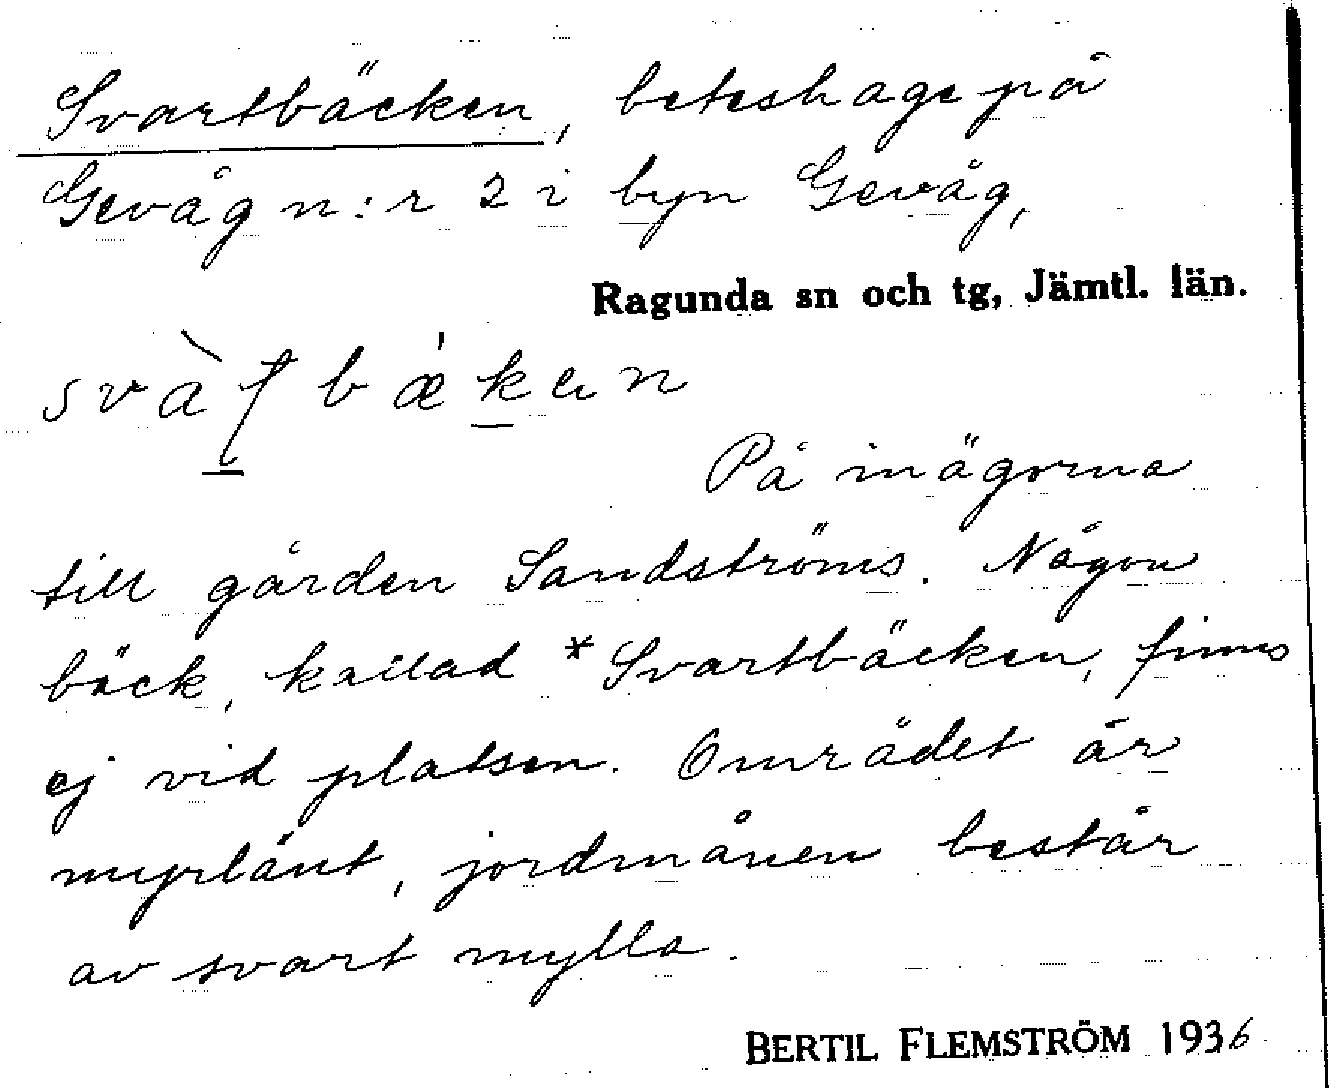 Svartbäcken, beteshage på
Gevåg n:r 2 i byn Gevåg,
Ragunda sn och tg, Jämtl. län.
På inägorna
till gården Sandströms. Någon
bäck, kallad *Svartbäcken, finns
ej vid platsen. Området är
myrlänt, jordmånen består
av svart mylla.
BERTIL FLEMSTRÖM 1936